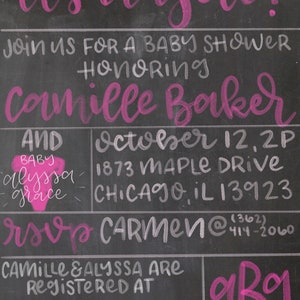 it's a girl!
JOIN US FOR A BABY SHOWER
HONORING
Camille Baker
AND
BABY
alyssa
grace
OCTOBER 12, 2P
1873 MAPLE DRIVE
CHICAGO, IL 13923
rsvp CARMEN@ (362)
414-2060
CAMILLE & ALYSSA ARE
REGISTERED AT